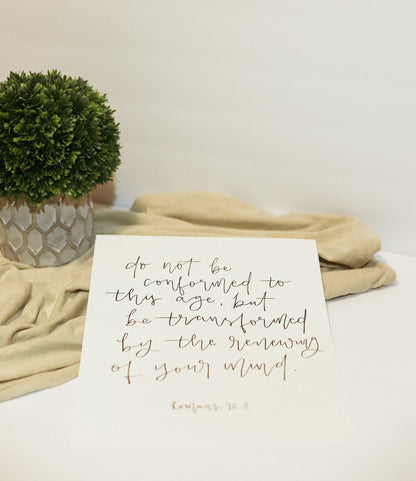 do not be
conformed to
this age, but
be transformed
by the renewing
of your mind.
Romans 12 2